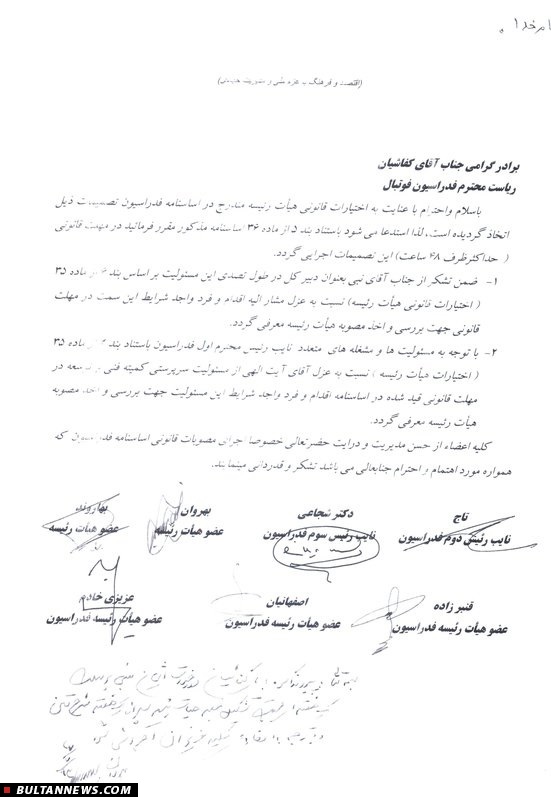 (اقتصاد و فرهنگ با عزم ملی و مدیریت جهادی)
برادر گرامی جناب آقای کفاشیان
ریاست محترم فدراسیون فوتبال
باسلام واحترام با عنایت به اختیارات قانونی هیأت رئیسه مندرج در اساسنامه فدراسیون تصمیمات ذیل
اتخاذ گردیده است، لذا استدعا می شود باستناد بند ۵ از ماده ۳۶ اساسنامه مذکور مقرر فرمائید در مهلت قانونی
( حداکثرظرف ۴۸ ساعت) این تصمیمات اجرایی گردد.
۱- ضمن تشکر از جناب آقای نبی بعنوان دبیر کل در طول تصدی این مسئولیت بر اساس بند از ماده ۳۵
( اختیارات قانونی هیأت رئیسه) نسبت به عزل مشار الیه اقدام و فرد واجد شرایط این سمت در مهلت
قانونی جهت بررسی و اخذ مصوبه هیأت رئیسه معرفی گردد.
۲- با توجه به مسئولیت ها و مشغله های متعدد نایب رئیس محترم اول فدراسیون باستناد بند از ماده ۳۵
( اختیارات هیأت رئیسه ) نسبت به عزل آقای آیت الهی از مسئولیت سرپرستی کمیته فنی و توسعه در
مهلت قانونی قید شده در اساسنامه اقدام و فرد واجد شرایط این مسئولیت جهت بررسی و اخذ مصوبه
هیأت رئیسه معرفی گردد.
کلیه اعضاء از حسن مدیریت و درایت حضرتعالی خصوصا اجرای مصوبات قانونی اساسنامه فدراسیون که
همواره مورد اهتمام و احترام جنابعالی می باشد تشکر و قدردانی مینمایند.
تاج دکتر شجاعی بهروان بهاروند
نایب رئیس دوم فدراسیون نایب رئیس سوم فدراسیون عضو هیأت رئیسه عضو هیأت رئیسه
قنبر زاده اصفهانیان عزیزی خادم
عضو هیأت رئیسه فدراسیون عضو هیأت رئیسه فدراسیون عضو هیأت رئیسه فدراسیون
BULTANNEWS.COM